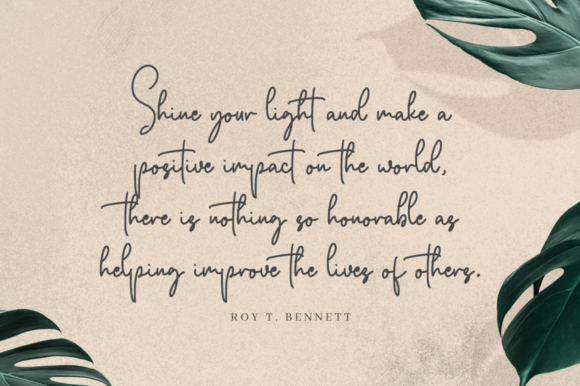 Shine your light and make a
positive impact on the world,
there is nothing so honorable as
helping improve the lives of others.
ROY T. BENNETT